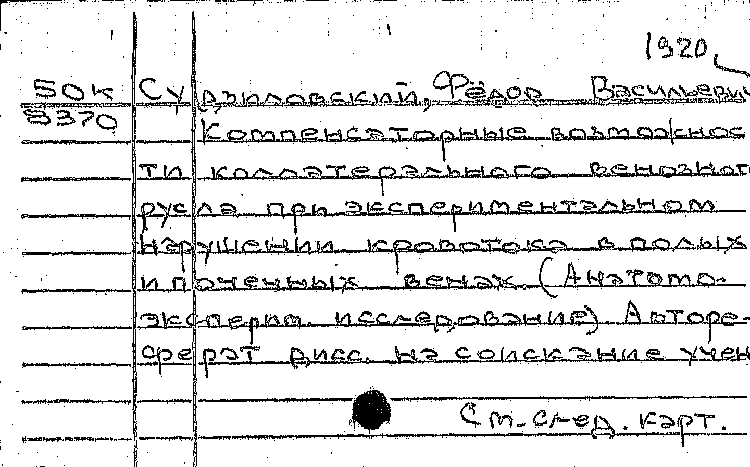 1920,
50к Судзиловский, Фёдор Васильевич
5370 Компенсаторные возможнос
ти коллатерального венозного
русла при экспериментальном
нарушении кровотока в полых
и почечных венах. (Анатомо-
эксперим. исследование) Авторе-
ферат дисс. на соискание учен
См. след. карт.